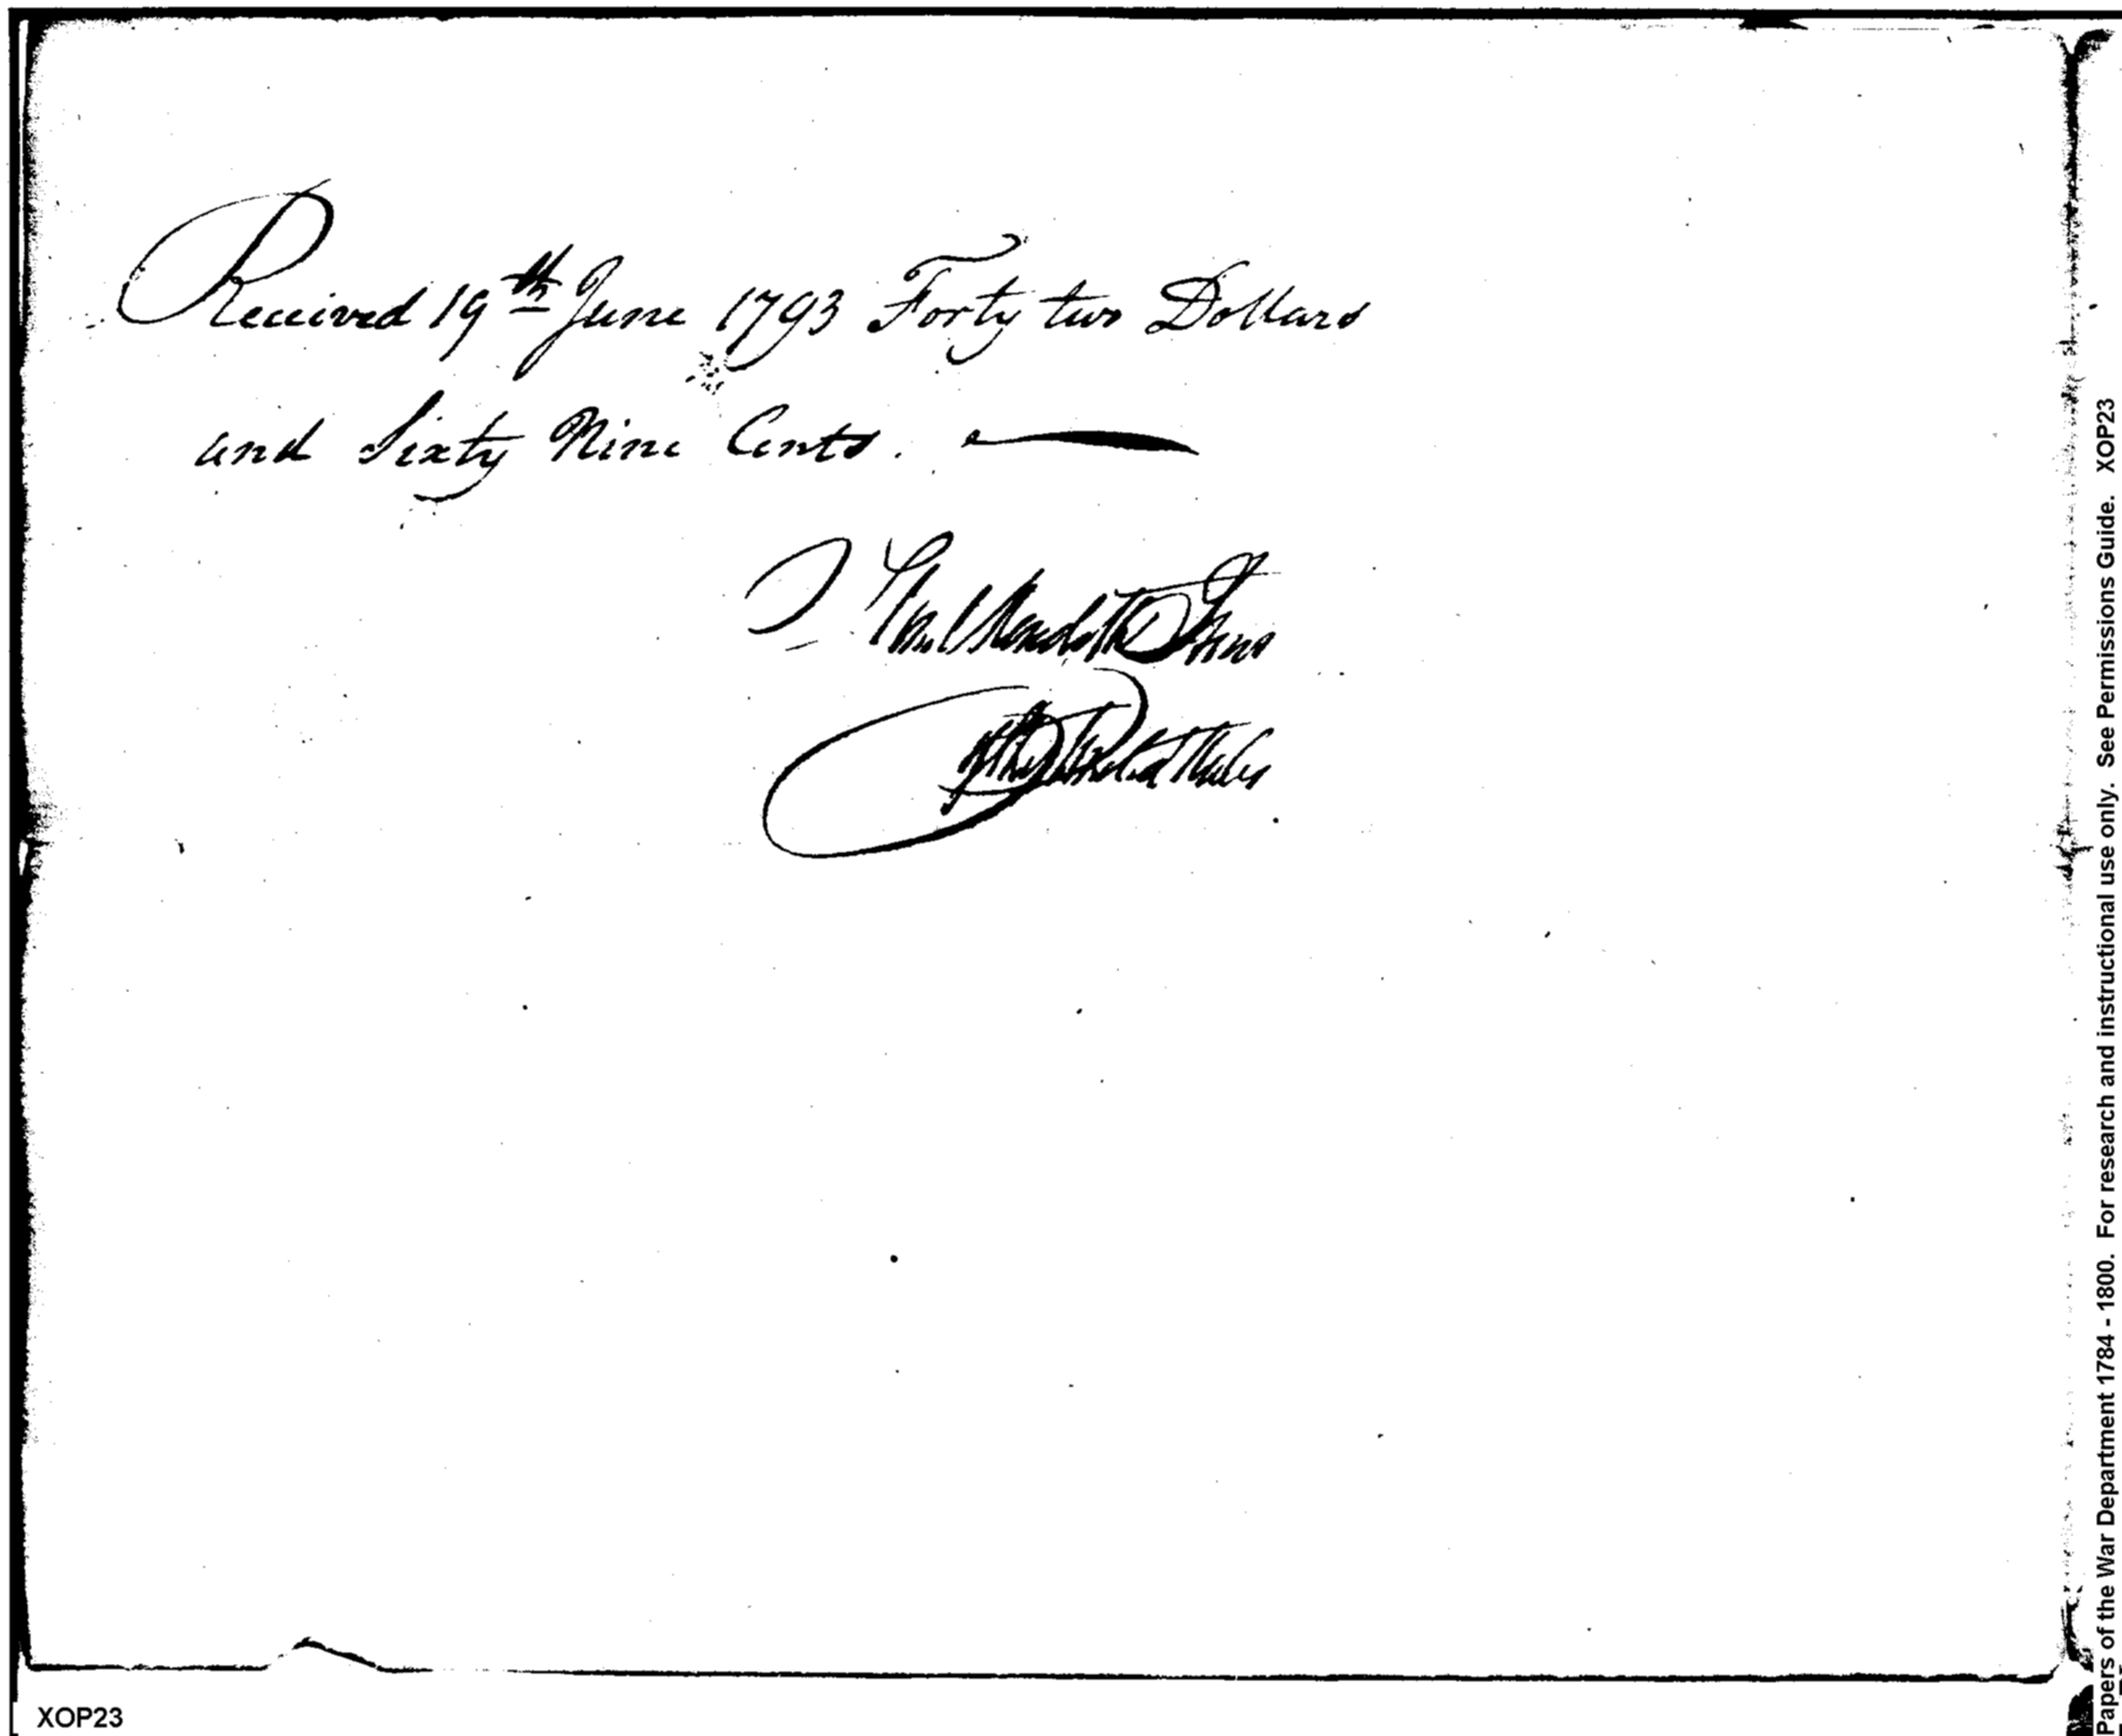 Received 19th June 1793 Forty two Dollars
and Sixty Nine Cents.
Saml Meredith
of the United States
Papers of the War Department 1784 - 1800. For research and instructional use only. See Permissions Guide. XOP23
XOP23